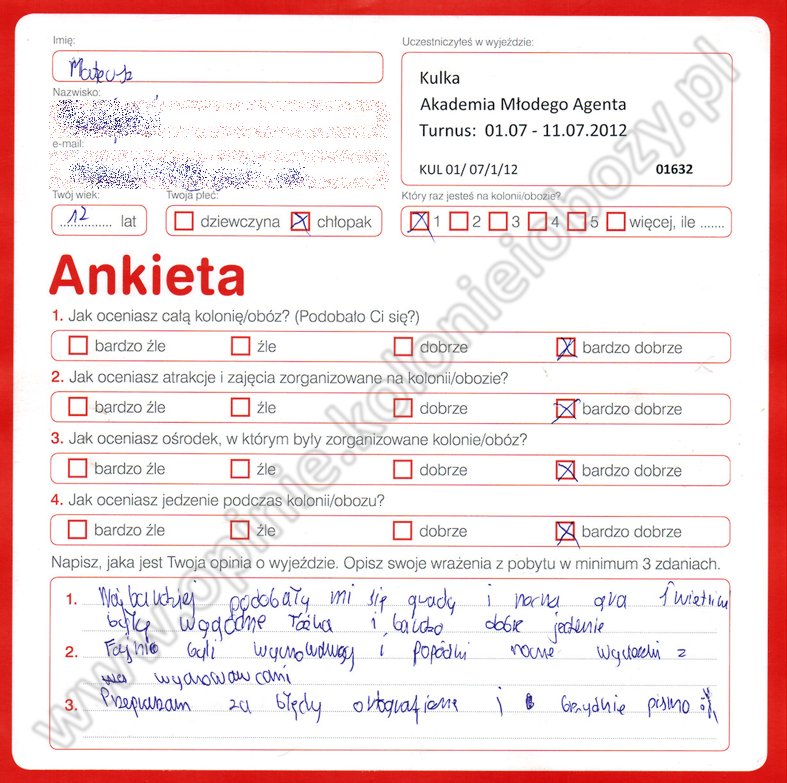 Imię:
Mateusz
Uczestniczyłeś w wyjeździe:
Kulka
Akademia Młodego Agenta
Turnus: 01.07 - 11.07.2012
KUL 01/ 07/1/12 01632
Nazwisko:
e-mail:
Twój wiek: Twoja płeć: Który raz jesteś na kolonii/obozie?
12 lat dziewczyna chłopak 1 2 3 4 5 więcej, ile .......
Ankieta
1. Jak oceniasz całą kolonię/obóz? (Podobało Ci się?)
bardzo źle źle dobrze bardzo dobrze
2. Jak oceniasz atrakcje i zajęcia zorganizowane na kolonii/obozie?
bardzo źle źle dobrze bardzo dobrze
3. Jak oceniasz ośrodek, w którym były zorganizowane kolonie/obóz?
bardzo źle źle dobrze bardzo dobrze
4. Jak oceniasz jedzenie podczas kolonii/obozu?
bardzo źle źle dobrze bardzo dobrze
Napisz, jaka jest Twoja opinia o wyjeździe. Opisz swoje wrażenia z pobytu w minimum 3 zdaniach.
1. Najbardziej podobały mi się quady i nocna gra
były wygodne łóżka i bardzo dobre jedzenie
2. Fajni byli wychowawcy i nocne z
wychowawcami
3. Przepraszam za błędy ortograficzne i brzydkie pismo
www.opinie.kolonieiobozy.pl